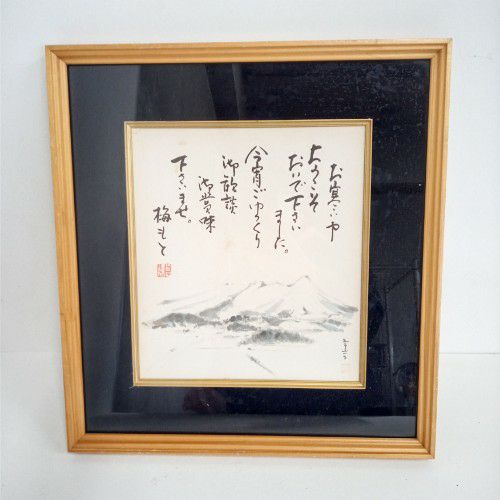 お寒い中
ようこそ
おいで下さい
ました。
今宵ごゆっくり
御歓談
御賞味
下さいませ。
梅もと